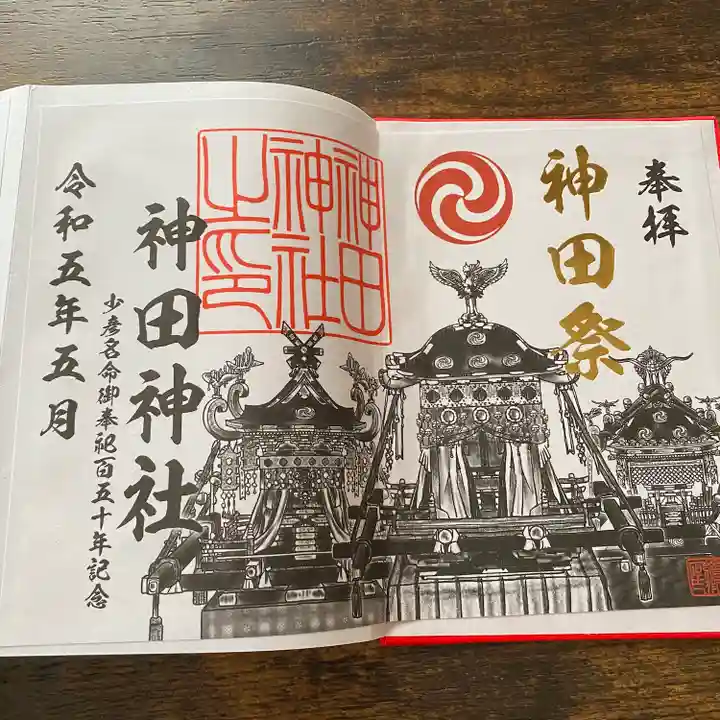 奉拝
神田祭
神田神社之印
神田神社
少彦名命御奉祀百五十年記念
令和五年五月